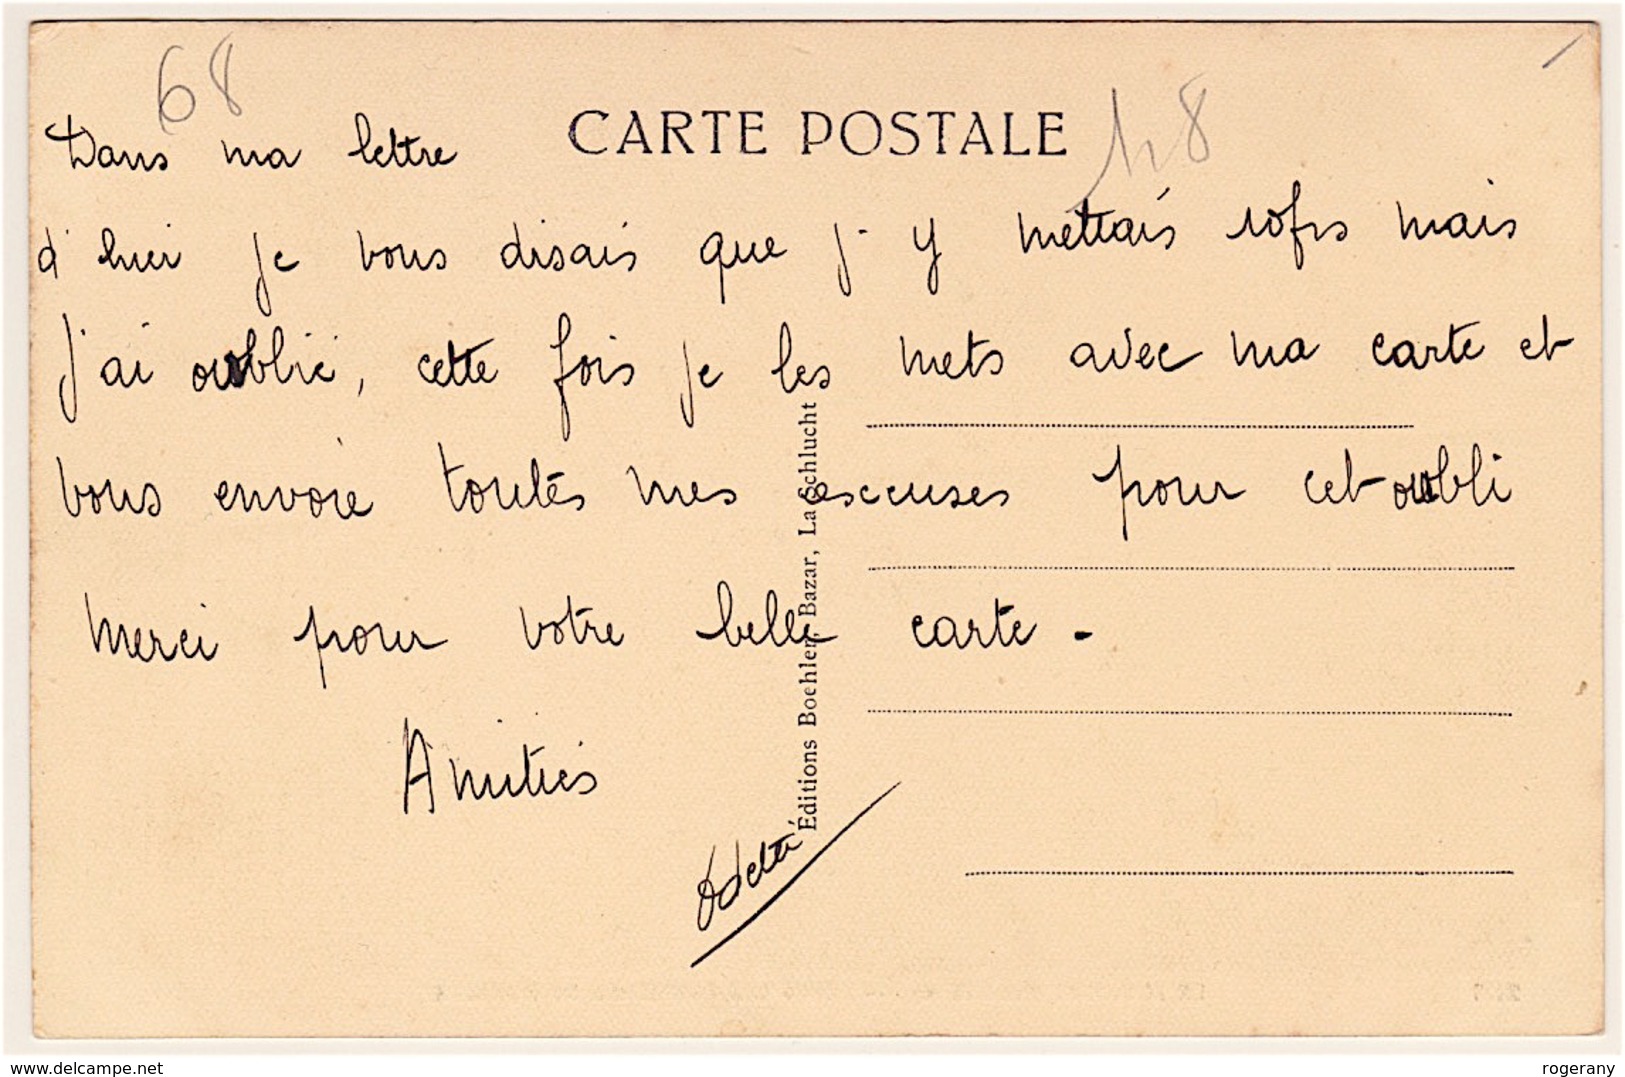 68
CARTE POSTALE
Dans ma lettre
d'hier je vous disais que j'y mettais 10frs mais
j'ai oublié, cette fois je les mets avec ma carte et
vous envoie toutes mes escuses pour cet oubli
merci pour votre belle carte -
Amitiés
Odette
Editions Boehler, Bazar, La Schlucht
www.delcampe.net
rogerany